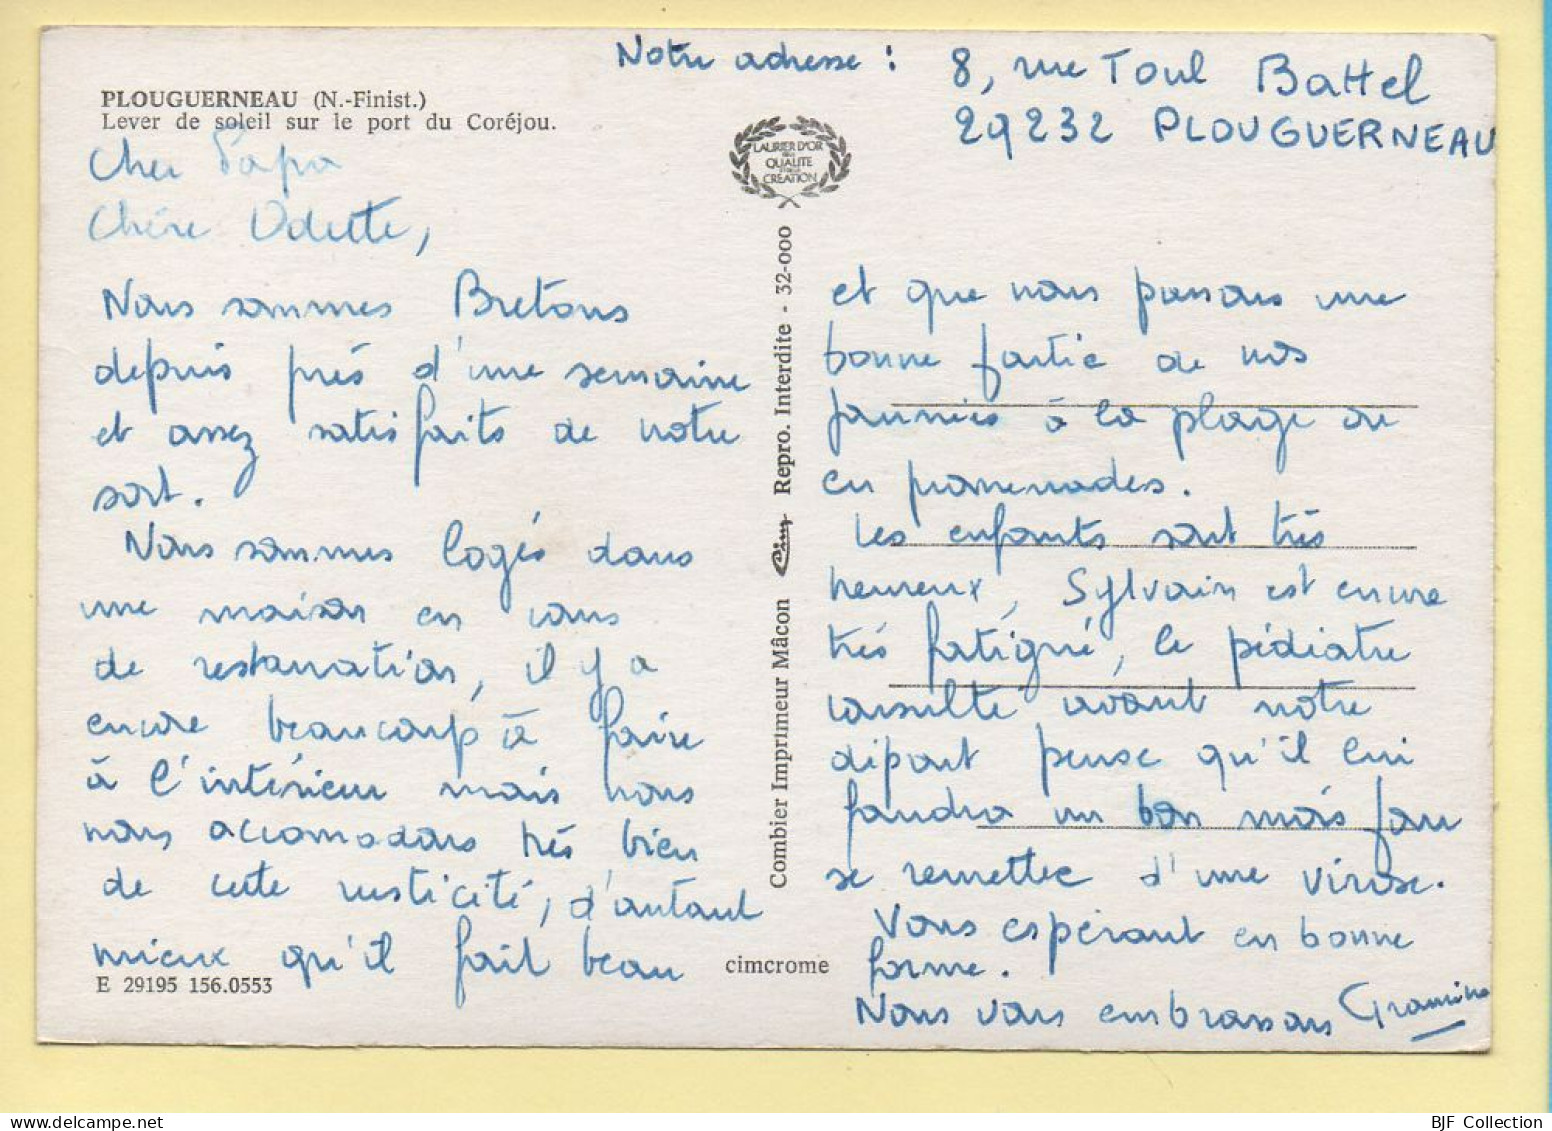 PLOUGUERNEAU (N.-Finist.)
Lever de soleil sur le port du Coréjou.
Notre adresse : 8, rue Toul Battel
29232 PLOUGUERNEAU
LAURIER D'OR
QUALITE
CREATION
Cher Papa
Chère Odette,
Nous sommes Bretons
depuis près d'une semaine
et assez satisfaits de notre
sort.
Nous sommes logés dans
une maison en cours
de restauration, il y a
encore beaucoup à faire
à l'intérieur mais nous
nous accomodons très bien
de cette rusticité, d'autant
mieux qu'il fait beau
E 29195 156.0553
Combier Imprimeur Mâcon Cim Repro. Interdite - 32-000
cimcrome
et que nous passons une
bonne partie de nos
journées à la plage ou
en promenades.
Les enfants sont très
heureux, Sylvain est encore
très fatigué, le pédiatre
consulté avant notre
départ pense qu'il lui
faudra un bon mois pour
se remettre d'une virose.
Vous espérant en bonne
forme.
Nous vous embrassons
BJF Collection